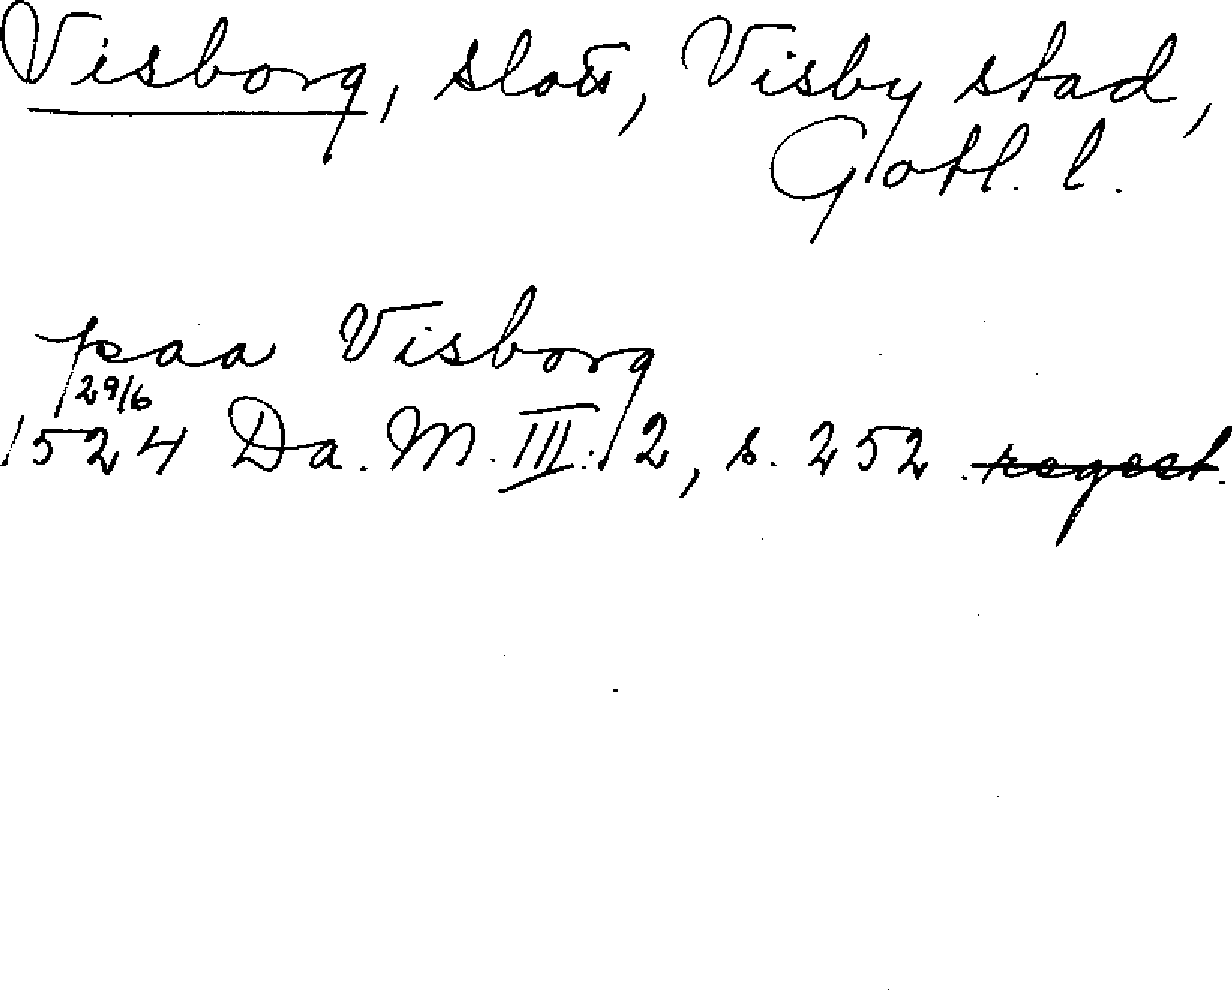 Visborg, slott, Visby stad,
Gotl. l.
paa Visborg
29/6
1524 Da. M. III:2, s. 252. regest.